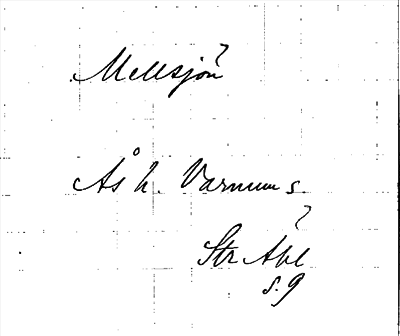 Mellsjön?
Ås h. Varnum s.
?
Str Ahl
s. 9